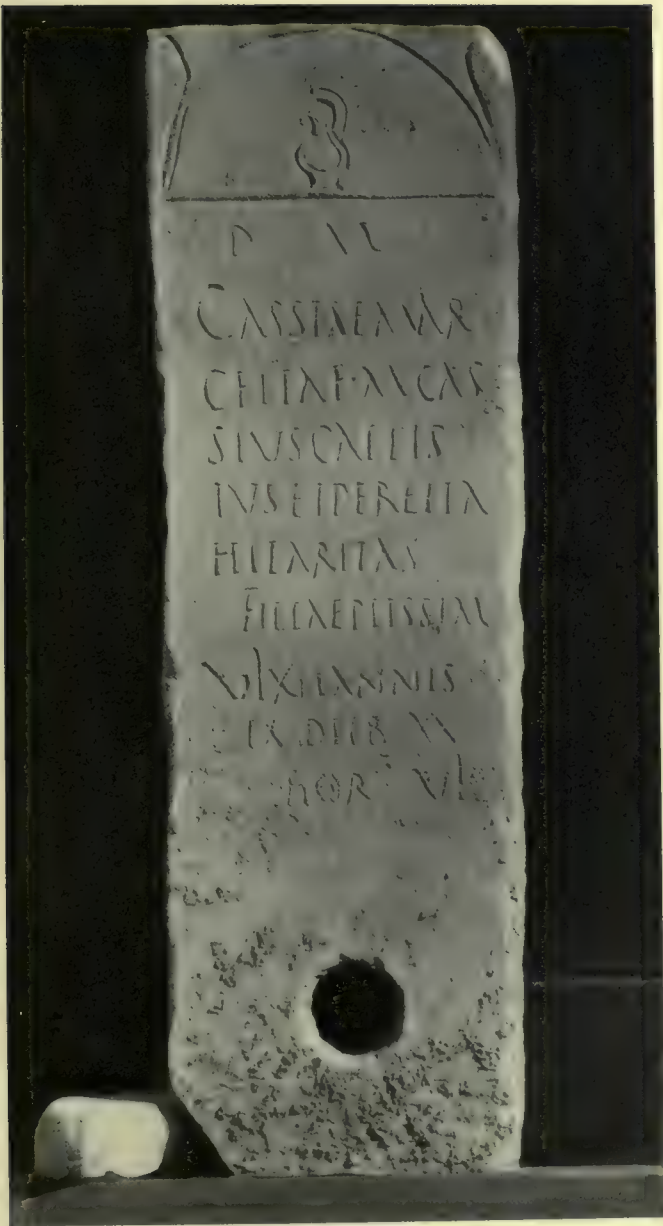 D M
CASSIAE MAR
CELLAE · M CAS
SIVS CALLIS
TVS ET PERELLIA
HILARITAS
FILIAE PIISSIM
VIXIT ANNIS
IX DIEB
HOR VI